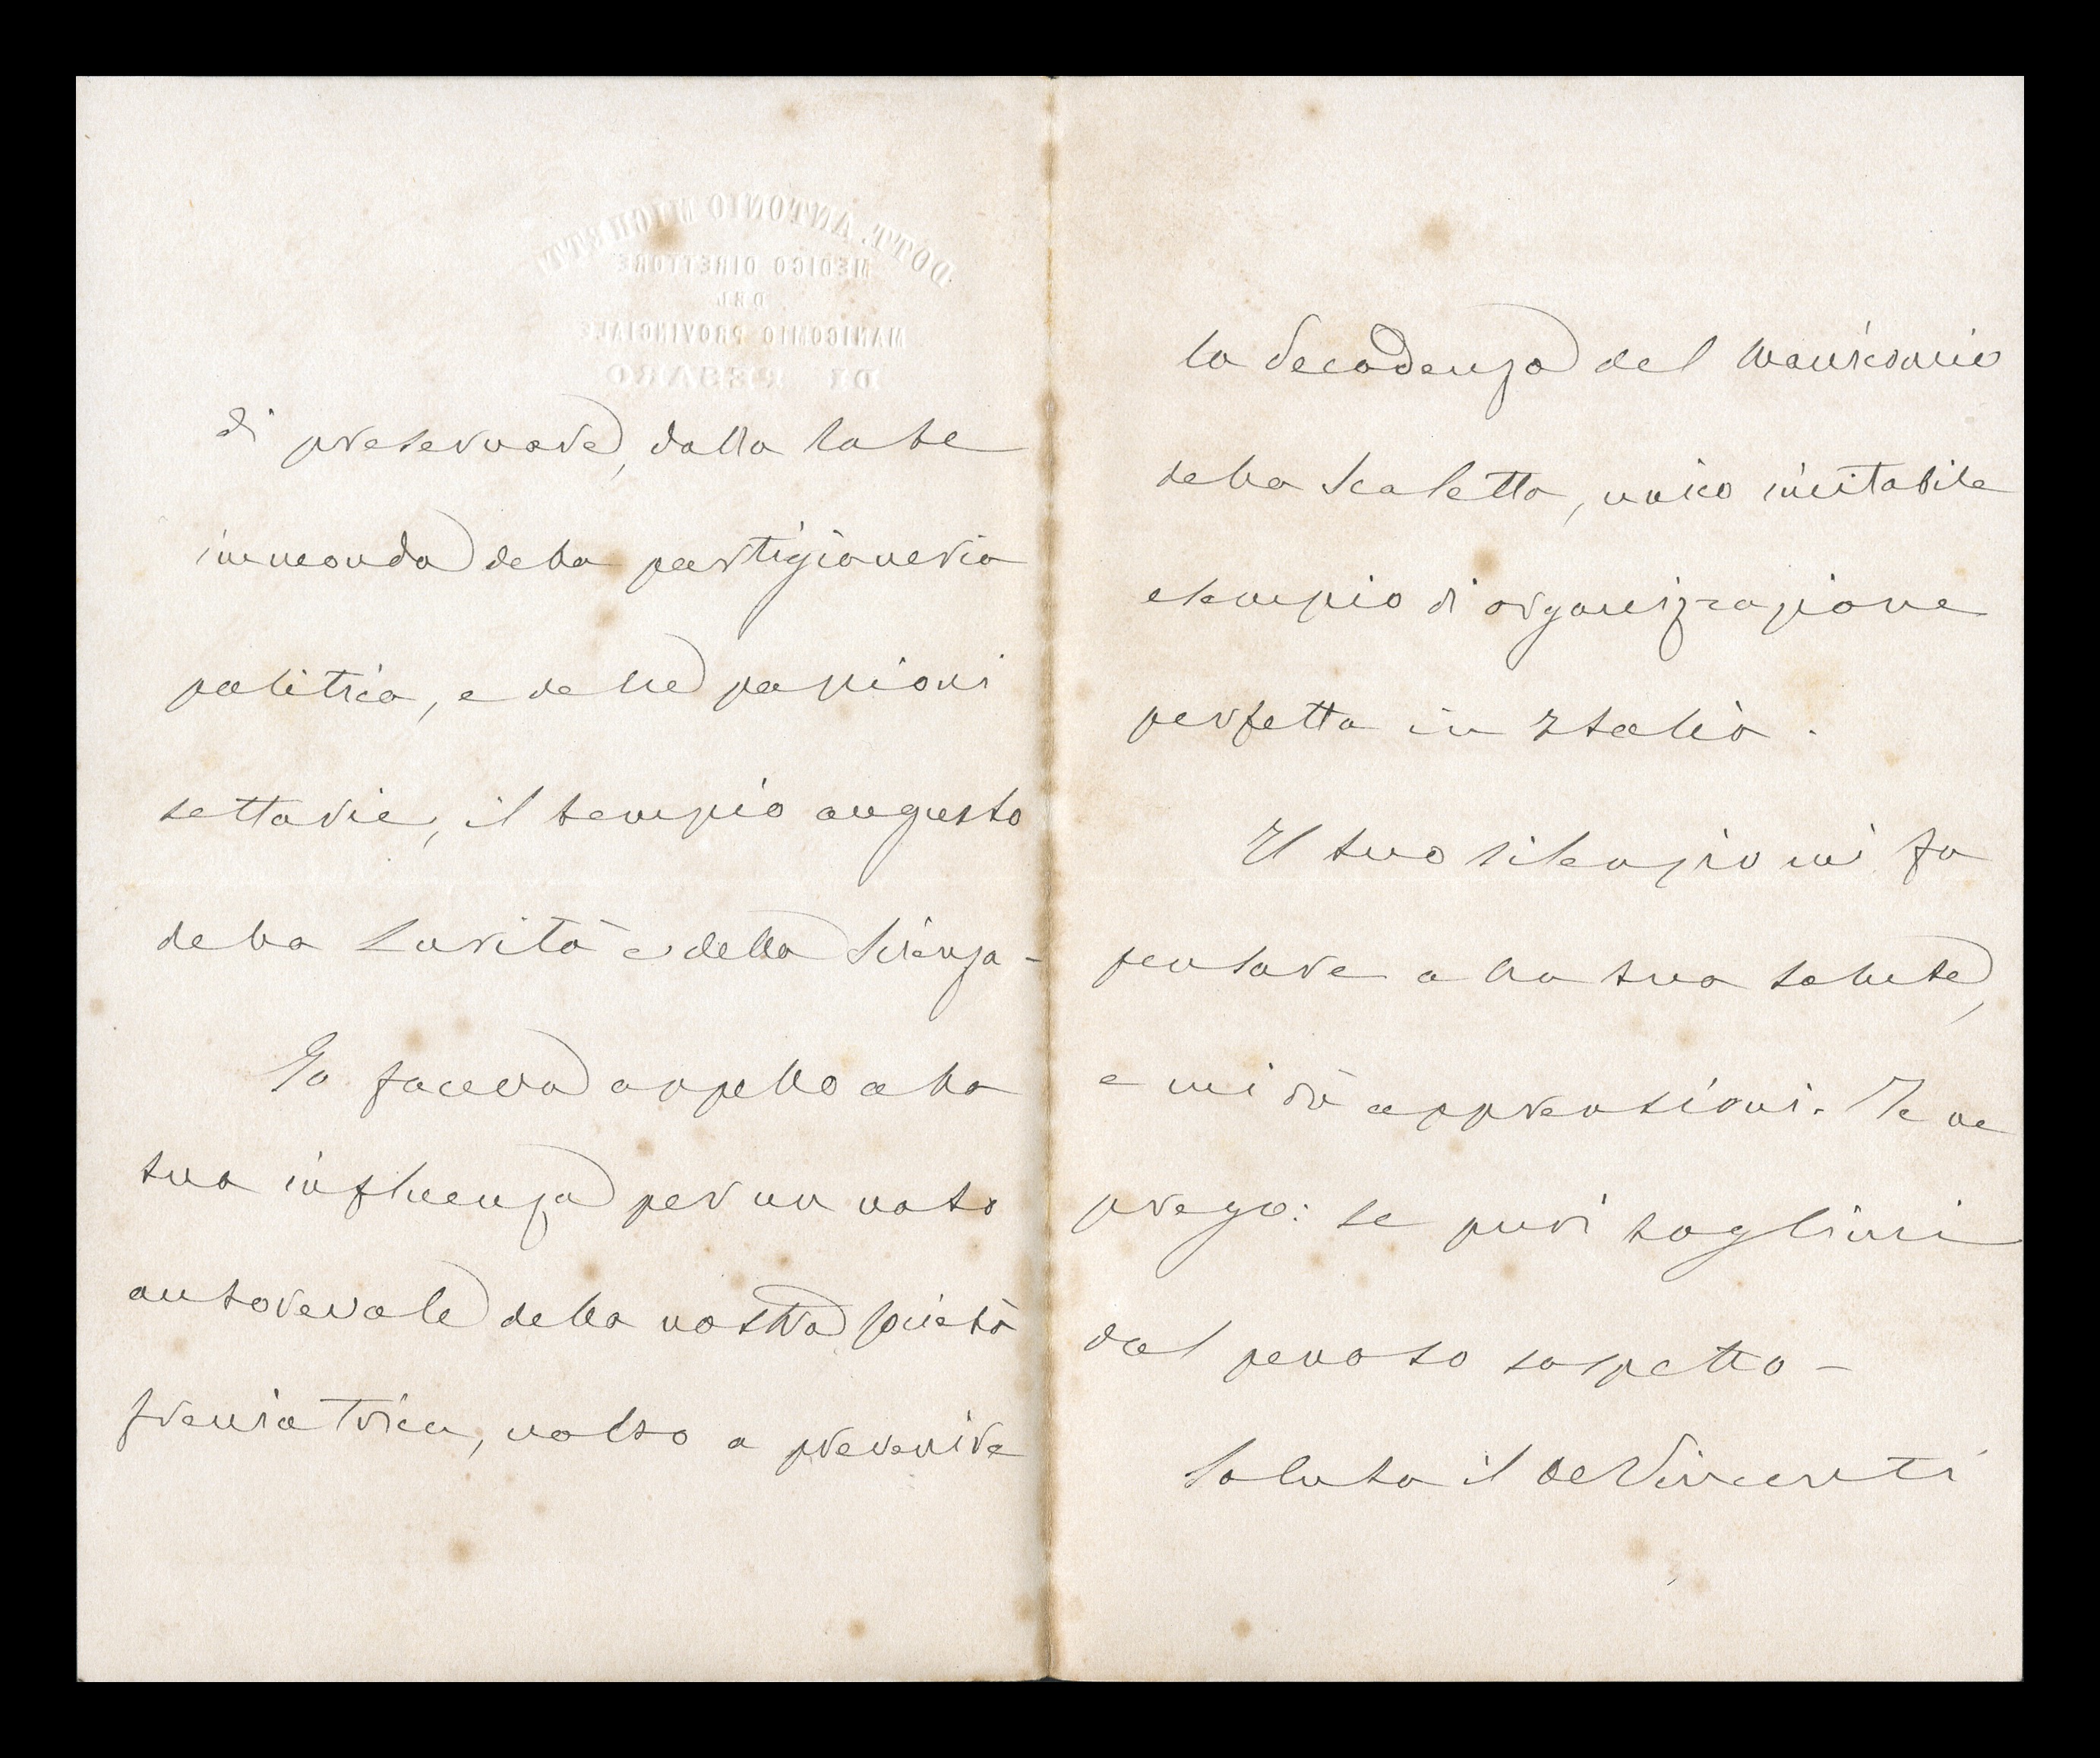 DOTT. ANTONIO MICHETTI
MEDICO DIRETTORE
DEL
MANICOMIO PROVINCIALE
DI PESARO
di preservare, dalla labe
immonda della partigianeria
politica, e delle passioni
settarie, il tempio augusto
della Carità e della Scienza -
Io faceva appello alla
tua influenza per un voto
autorevole della nostra Società
freniatrica, volto a prevenire
la decadenza del Manicomio
della Scaletta, unico imitabile
esempio di organizzazione
perfetta in Italia.
Il tuo silenzio mi fa
pensare alla tua salute,
e mi dà apprensioni. Te ne
prego: se puoi toglimi
dal penoso sospetto -
Saluta il de Vincenti